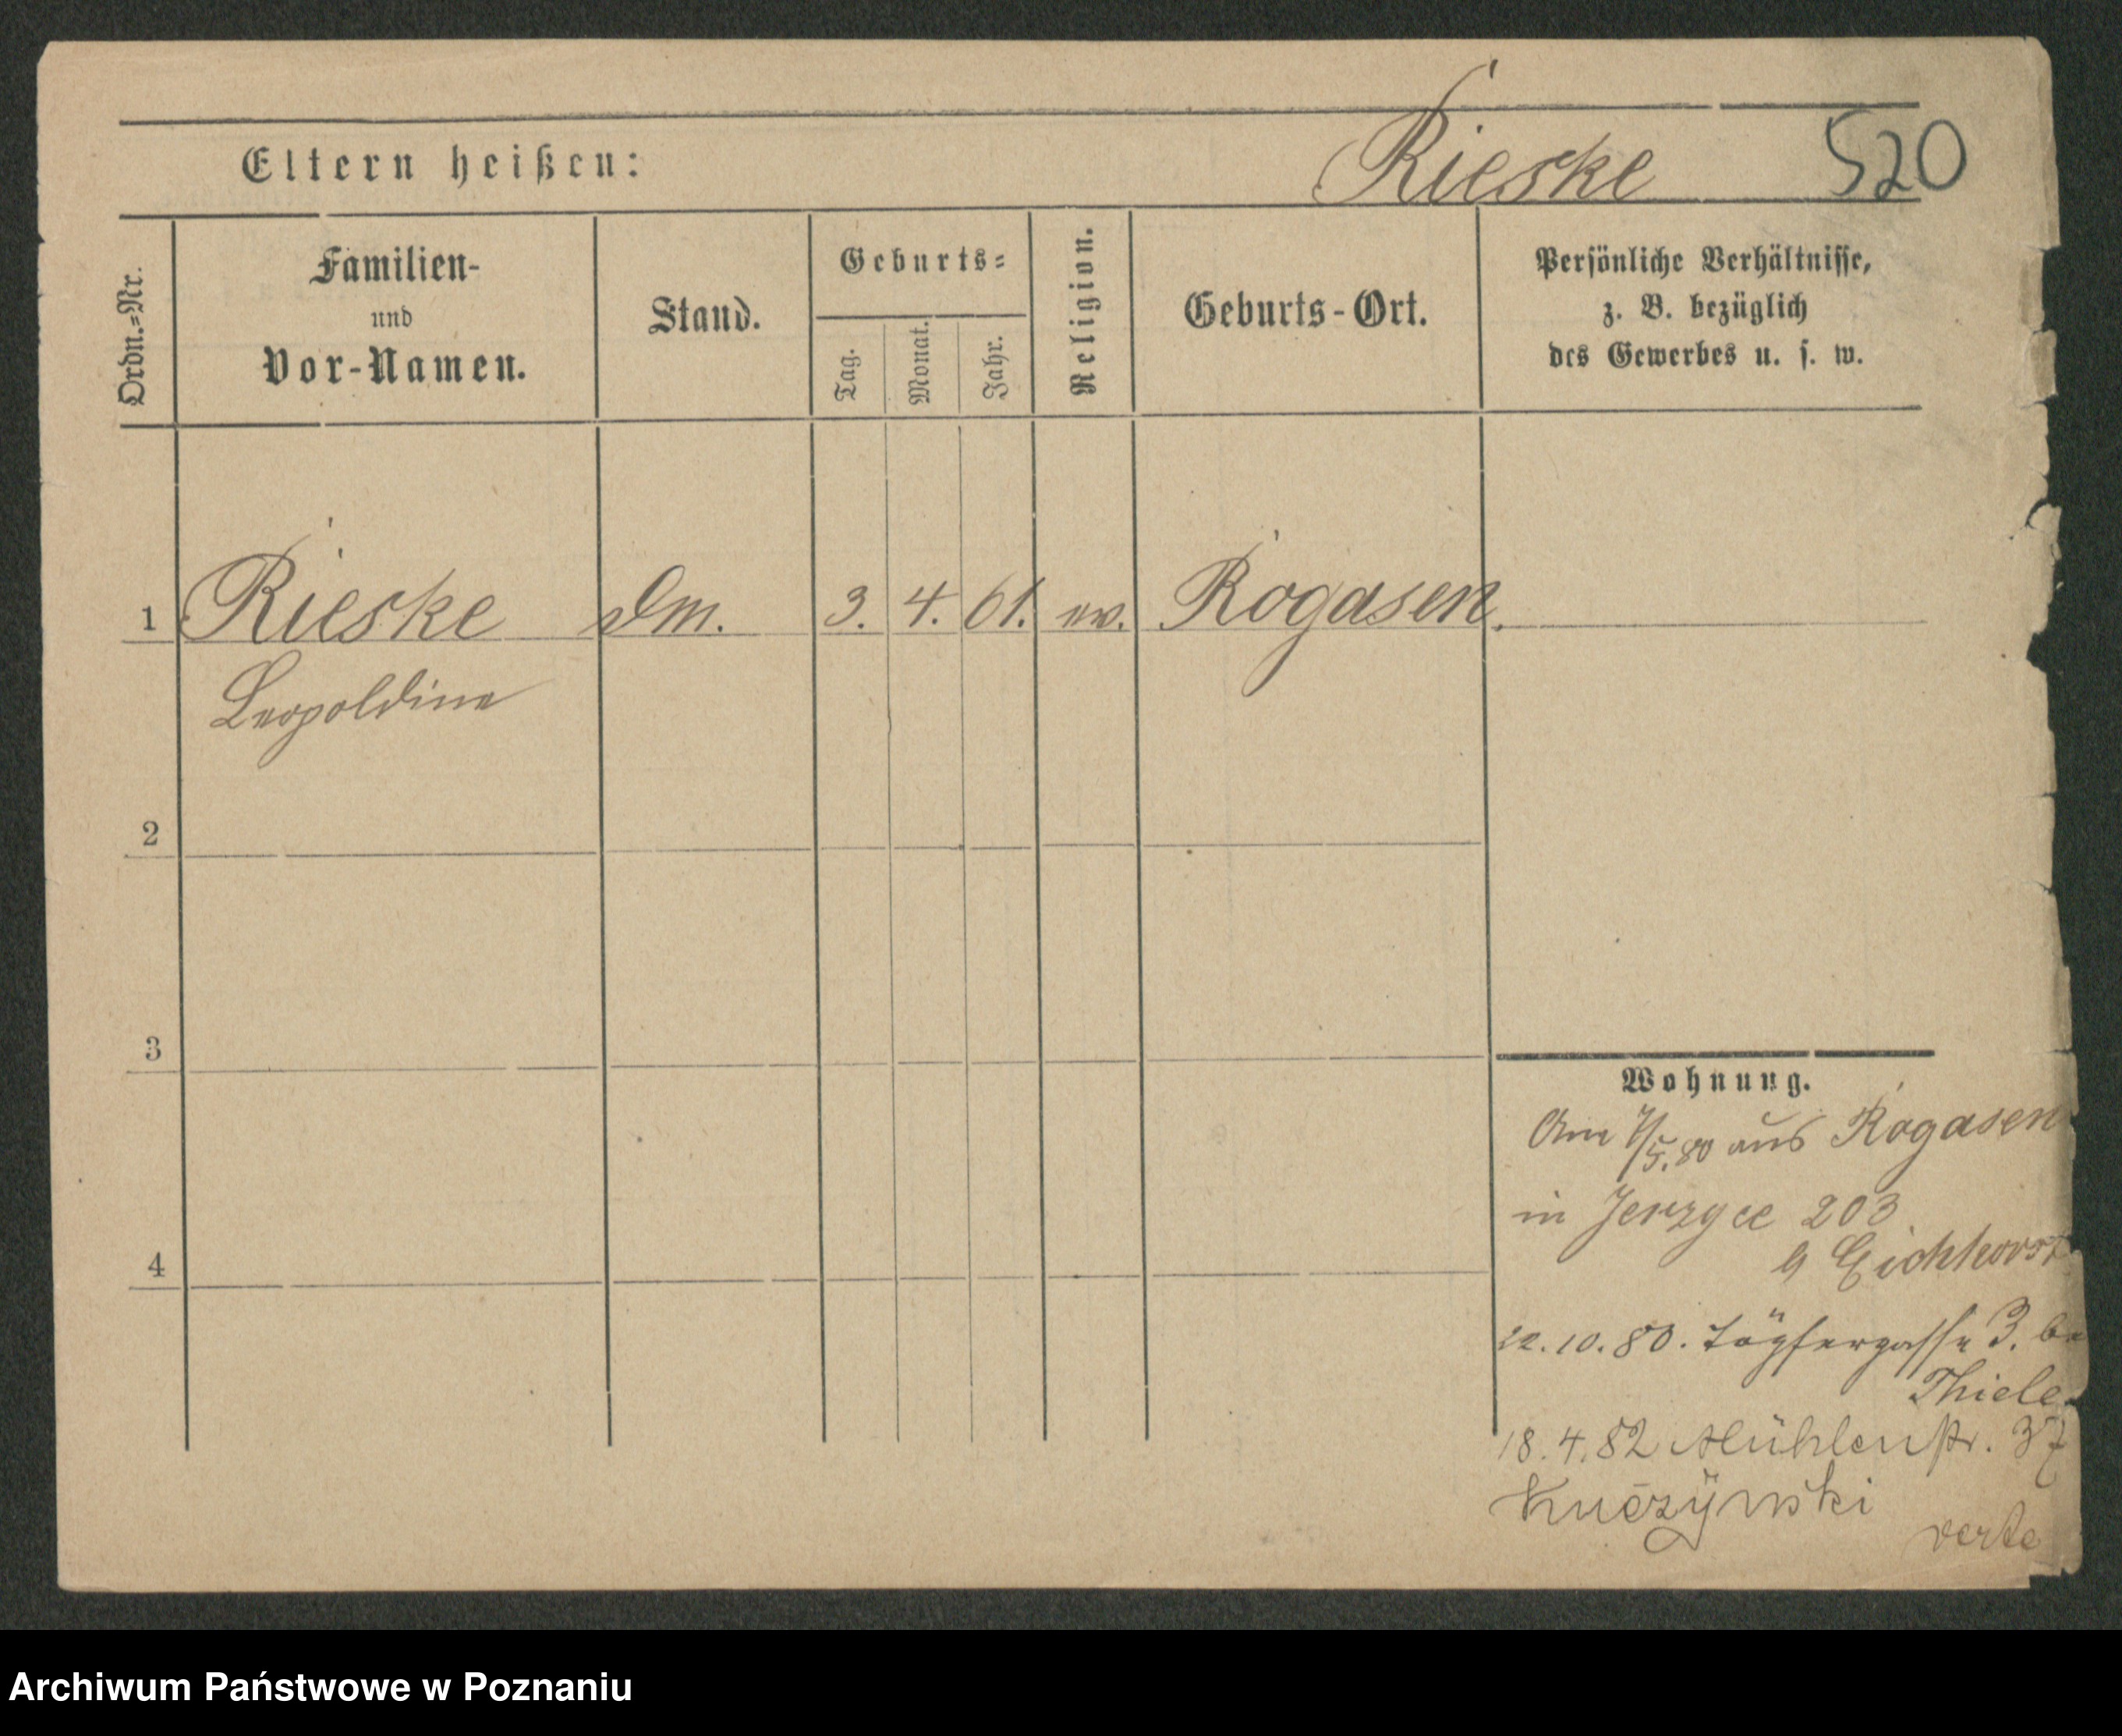 Eltern heißen: Rieske 520
Ordn.=Nr.
Familien-
und
Vor-Namen.
Stand.
Geburts=
Tag. Monat. Jahr.
Religion.
Geburts-Ort.
Persönliche Verhältnisse,
z. B. bezüglich
des Gewerbes u. s. w.
1 Rieske Dm. 3. 4. 61. ev. Rogasen.
Leopoldine
2
3
4
Wohnung.
Am 7/5.80 aus Rogasen
in Jerzyce 203
Eichhorst
22.10.80. Töpfergasse 3. bei
Thiele
18.4.82 Mühlenstr. 37
Kuczynski
verte
Archiwum Państwowe w Poznaniu